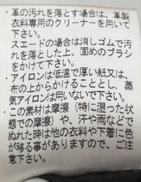 ・革の汚れを落とす場合は、革製
衣料専用のクリーナーを用いて
下さい。
スエードの場合は消しゴムで汚
れを落とした上、固めのブラシ
をかけて下さい。
・アイロンは低温で厚い紙又は、
布の上からかけることとし、蒸
気アイロンは用いないで下さい。
・この素材は摩擦（特に湿った状
態での摩擦）や、汗や雨などで
ぬれた時は他の衣料や下着に色
が移る事がありますので、ご注
意下さい。